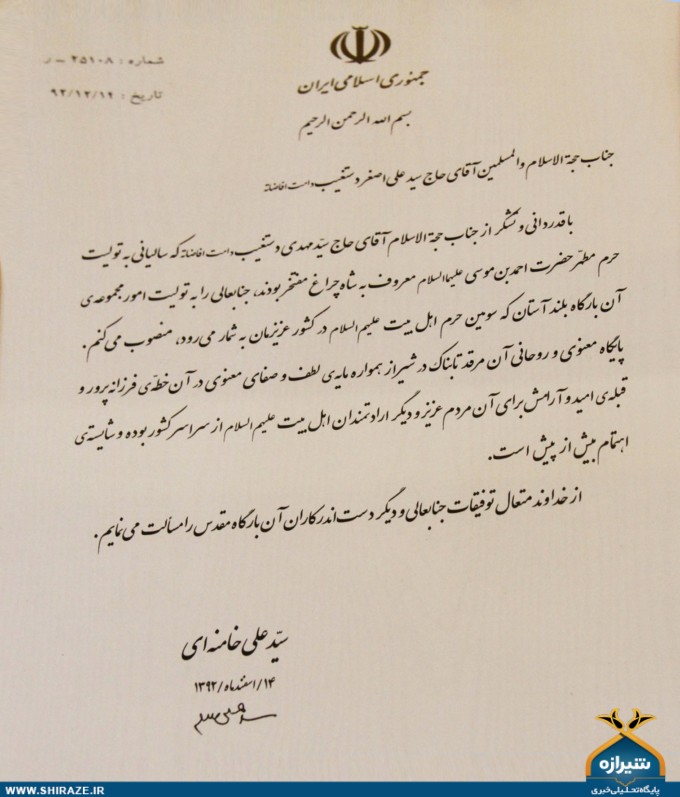 شماره : ۲۵۱۰۸ - ر
تاریخ : ۹۲/۱۲/۱۴
جمهوری اسلامی ایران
بسم الله الرحمن الرحیم
جناب حجة الاسلام والمسلمین آقای حاج سید علی اصغر دستغیب دامت افاضاته
با قدردانی و تشکر از جناب حجة الاسلام آقای حاج سیّد مهدی دستغیب دامت افاضاته که سالیانی به تولیت
حرم مطهّر حضرت احمد بن موسی علیهماالسلام معروف به شاه چراغ مفتخر بودند، جنابعالی را به تولیت امور مجموعه‌ی
آن بارگاه بلند آستان که سومین حرم اهل بیت علیهم السلام در کشور عزیزمان به شمار می‌رود، منصوب می‌کنم.
پایگاه معنوی و روحانی آن مرقد تابناک در شیراز همواره مایه‌ی لطف و صفای معنوی در آن خطّه‌ی فرزانه پرور و
قبله‌ی امید و آرامش برای آن مردم عزیز و دیگر ارادتمندان اهل بیت علیهم السلام از سراسر کشور بوده و شایسته‌ی
اهتمام بیش از پیش است.
از خداوند متعال توفیقات جنابعالی و دیگر دست اندرکاران آن بارگاه مقدس را مسألت می‌نمایم.
سیّد علی خامنه‌ای
۱۴/اسفندماه/۱۳۹۲
شیرازه
پایگاه تحلیلی خبری
WWW.SHIRAZE.IR